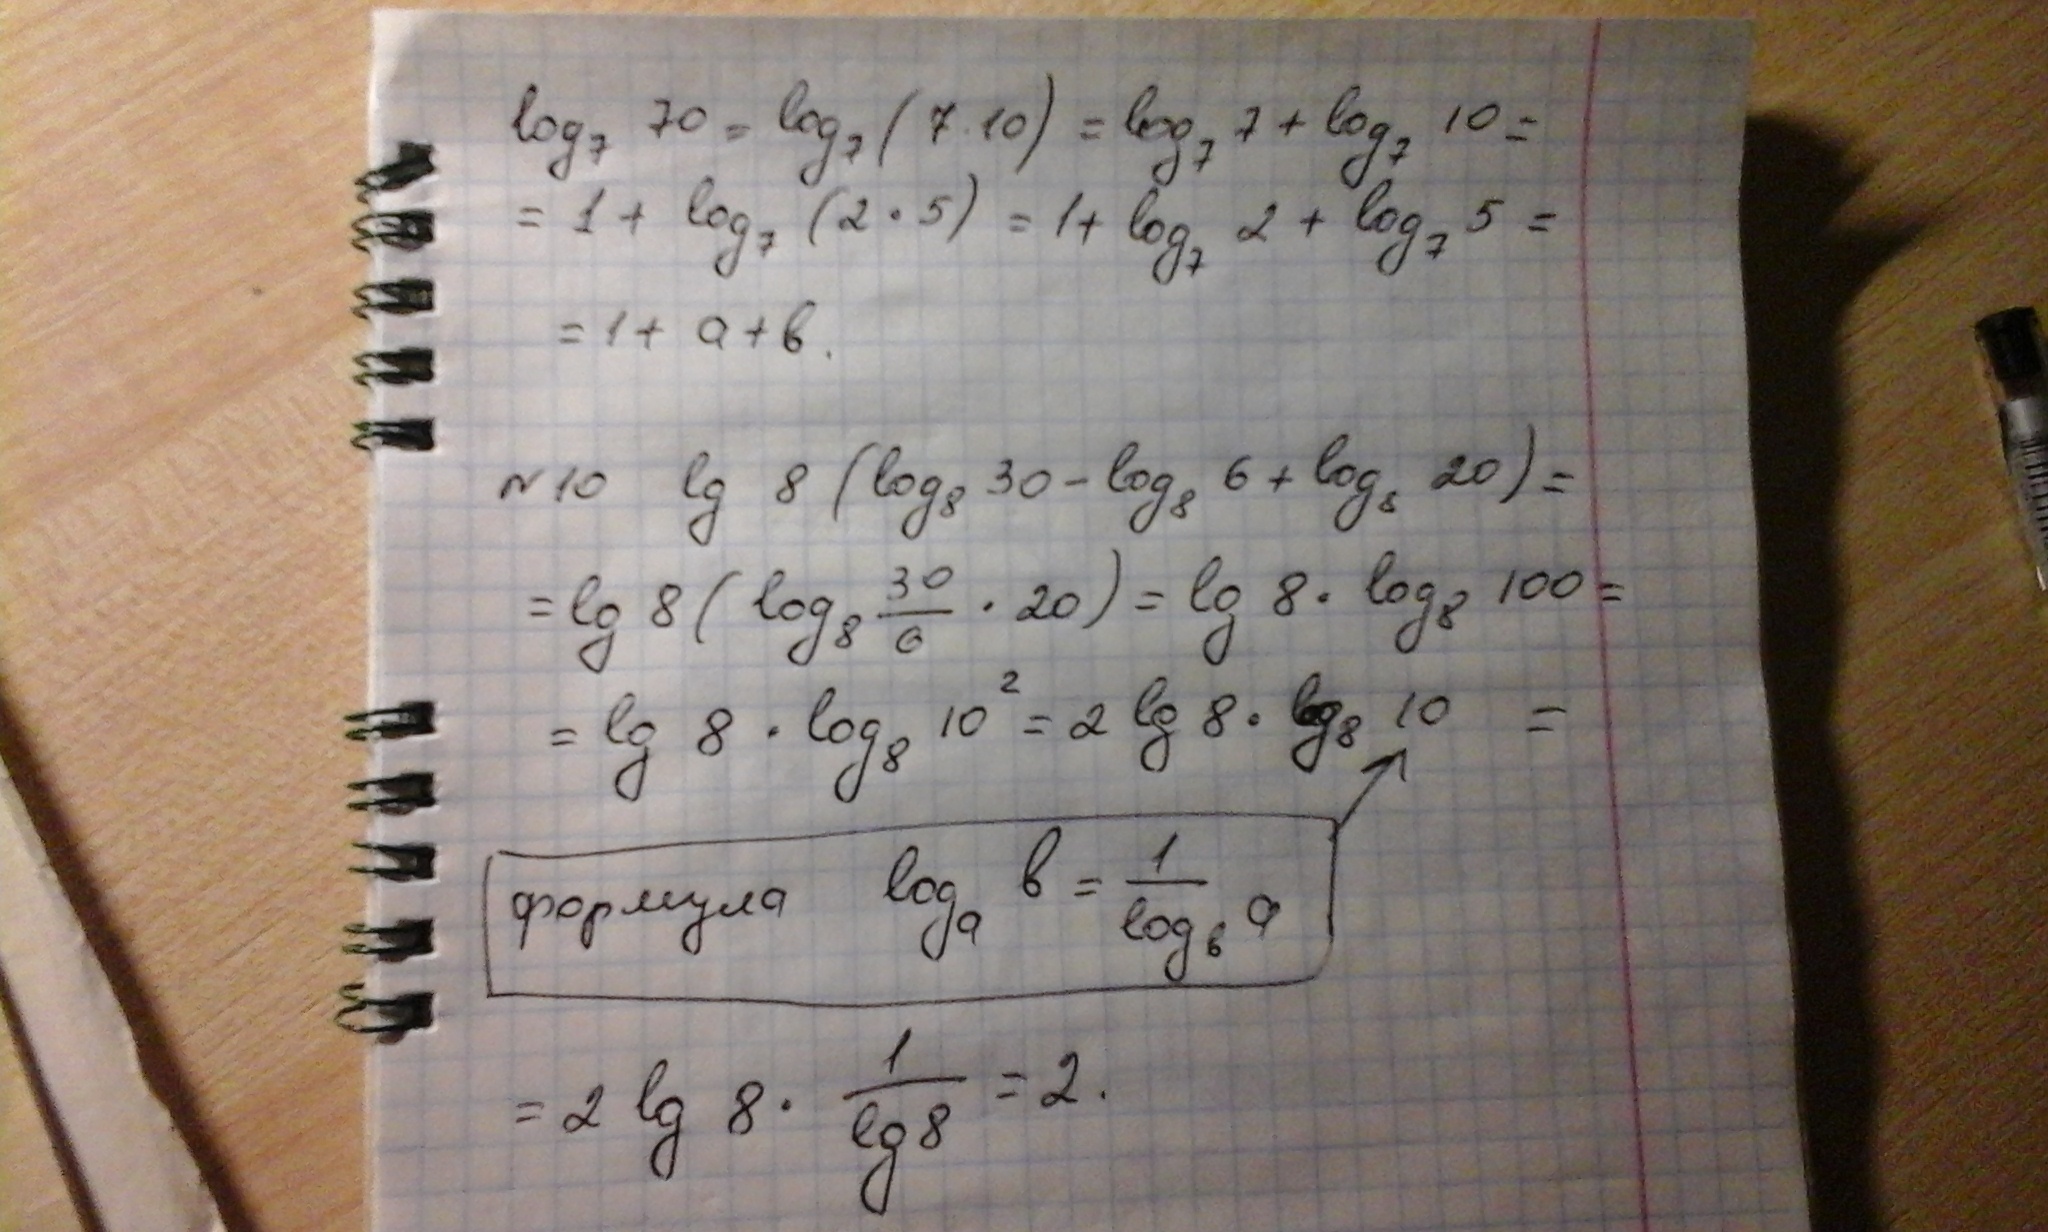 log₇ 70 = log₇ (7·10) = log₇ 7 + log₇ 10 =
= 1 + log₇ (2·5) = 1 + log₇ 2 + log₇ 5 =
= 1 + a + b.
N10 lg 8 (log₈ 30 - log₈ 6 + log₈ 20) =
= lg 8 (log₈ 30/6 · 20) = lg 8 · log₈ 100 =
= lg 8 · log₈ 10² = 2 lg 8 · log₈ 10 =
формула logₐ b = 1/log_b a
= 2 lg 8 · 1/lg 8 = 2.